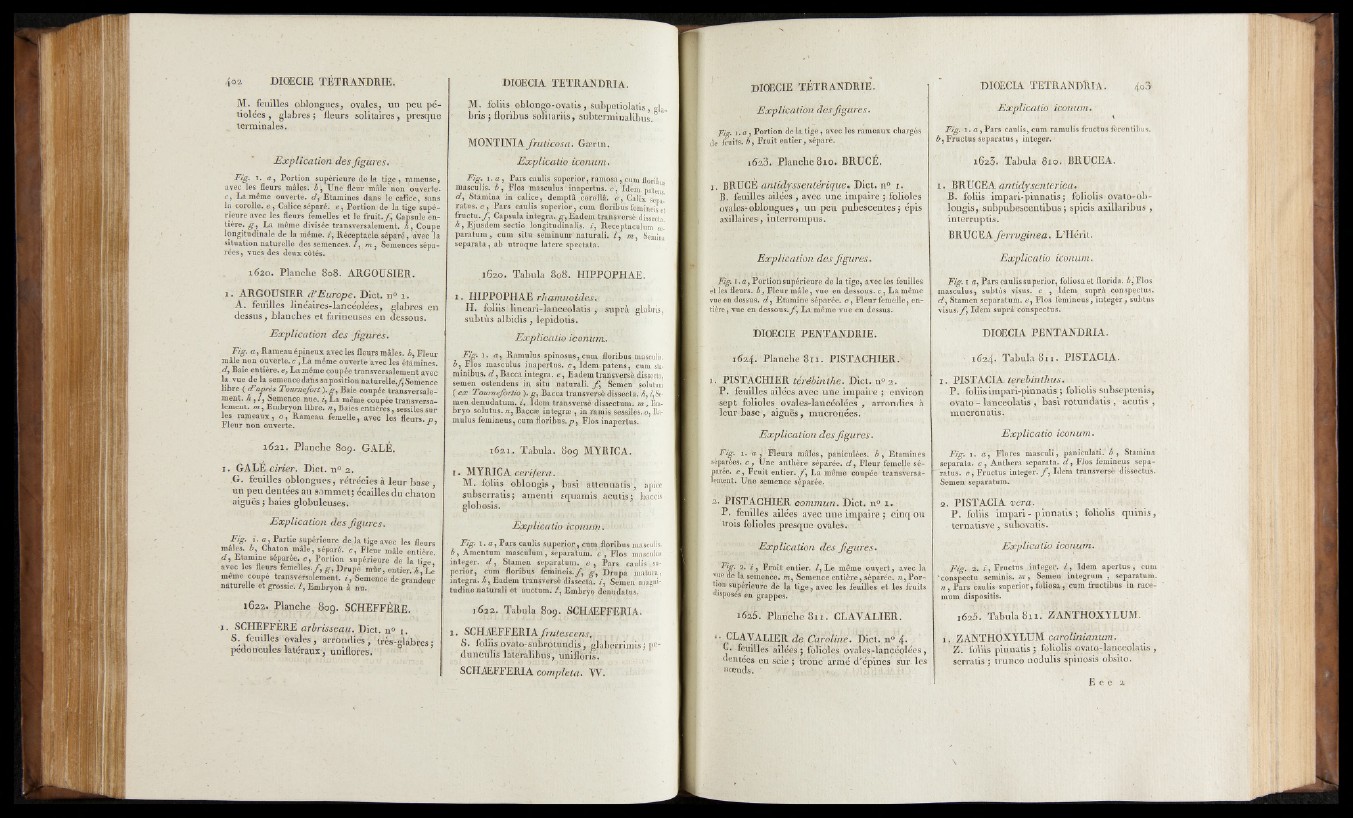 402 DIŒCIE TÉTRANDRIE.
M. feuilles oblongues, ovales, un peu pé-
tiolées, glabres ; fleurs solitaires, presque
terminales.
Explication des figures.
Fig. 1. a, Portion supérieure de la tige, rameuse,
avec les fleurs mâles. b, Une fleur mâle non ouverte.
c, La même ouverte. d, Etamines dans le calice, sans
la corolle. e, Calice séparé. e, Portion de la tige supé-
rieure avec les fleurs femelles et le fruit. f, Capsule en-
tière. g, La même divisée transversalement. h, Coupe
longitudinale de la même. i, Réceptacle séparé, avec la
situation naturelle des semences. l, m, Semences sépa-
rées, vues des deux côtés.
1620. Planche 808. ARGOUSIER.
1. ARGOUSIER d'Europe. Dict. n° 1.
A. feuilles linéaires-lancéolées, glabres en
dessus, blanches et farineuses en dessous.
Explication des figures.
Fig. a, Rameau épineux avec les fleurs mâles. b, Fleur
mâle non ouverte. c, La même ouverte avec les étamines.
d, Baie entière. e, La même coupée transversalement avec
la vue de la semence dans sa position naturelle. f, Semence
libre (d'après Tournefort). g, Baie coupée transversale-
ment. h, l, Semence nue. i, La même coupée transversa-
lement. m, Embryon libre. n, Baies entières, sessiles sur
les rameaux, o, Rameau femelle, avec les fleurs. p,
Fleur non ouverte.
1621. Planche 809. GALÉ.
1. GALÉ cirier. Dict. n° 2.
G. feuilles oblongues, rétrécies à leur base,
un peu dentées au sommet; écailles du chaton
aiguës ; baies globuleuses.
Explication des figures.
Fig. 1. a, Partie supérieure de la tige avec les fleurs
mâles. b, Chaton mâle, séparé. c, Fleur mâle entière.
d, Etamine séparée. e, Portion supérieure de la tige,
avec les fleurs femelles. f, g, Drupe mûr, entier. h, Le
même coupé transversalement. i, Semence de grandeur
naturelle et grossie. l, Embryon à nu.
1622. Planche 809. SCHEFFÈRE.
1. SCHEFFÈRE arbrisseau. Dict. n° 1.
S. feuilles ovales, arrondies, très-glabres ;
pédoncules latéraux, uniflores.
DIŒCIA TETRANDRIA.
M. foliis oblongo-ovatis, subpetiolatis, gla-
bris ; floribus solitariis, subterminalibus.
MONTINIA fruticosa. Gærtn.
Explicatio iconum.
Fig. 1. a, Pars caulis superior, ramosa, cum floribus
masculis. b, Flos masculus inapertus. c, Idem patens.
d, Stamina in calice, demptâ corollâ. e, Calix sepa-
ratus. e, Pars caulis superior, cum floribus femineis et
fructu. f, Capsula integra. g, Eadem transversè dissecta.
h, Ejusdem sectio longitudinalis. i, Receptaculum
paratum, cum situ seminum naturali. l, m, Semina
separata, ab utroque latere spectata.
1620. Tabula 808. HIPPOPHAE.
1. HIPPOPHAE rhamnoides.
H. foliis lineari-lanceolatis, suprà glabris,
subtùs albidis, lepidotis.
Explicatio iconum.
Fig. 1. a, Ramulus spinosus, cum floribus masculis.
b, Flos masculus inapertus. c, Idem patens, cum sta-
minibus. d, Bacca integra. e, Eadem transversè dissecta,
semen ostendens in situ naturali. f, Semen solutum
(ex Tournefortio). g, Bacca transversè dissecta. h, l, Se-
men denudatum. i, Idem transversè dissectum. m, Em-
bryo solutus. n, Baccæ integræ, in ramis sessiles. o, Ra-
mulus femineus, cum floribus. p, Flos inapertus.
1621. Tabula. 809 MYRICA.
1. MYRICA cerifera.
M. foliis oblongis, basi attenuatis, apice
subserratis ; amenti squamis acutis ; baccis
globosis.
Explicatio iconum.
Fig. 1. a, Pars caulis superior, cum floribus masculis.
b, Amentum masculum, separatum. c, Flos masculus
integer. d, Stamen separatum. e, Pars caulis su-
perior, cum floribus femineis. f, g, Drupa matura,
integra. h, Eadem transversè dissecta. i, Semen magni-
tudine naturali et auctum. l, Embryo denudatus.
1622. Tabula 809. SCHÆFFERIA.
1. SCHÆFFERIA frutescens.
S. foliis ovato-subrotundis, glaberrimis ; pe-
dunculis lateralibus, unifloris.
SCHÆFFERIA completa. W.
DIŒCIE TÉTRANDRIE.
Explication des figures.
Fig. 1. a, Portion de la tige, avec les rameaux chargés
de fruits. b, Fruit entier, séparé.
1623. Planche 810. BRUCÉ.
1. BRUCÉ antidyssentérique. Dict. n° 1.
B. feuilles ailées, avec une impaire ; folioles
ovales-oblongues, un peu pubescentes ; épis
axillaires, interrompus.
Explication des figures.
Fig. 1. a, Portion supérieure de la tige, avec les feuilles
et les fleurs. b, Fleur mâle, vue en dessous. c, La même
vue en dessus. d, Etamine séparée. e, Fleur femelle, en-
tière, vue en dessous. f, La même vue en dessus.
DIŒCIE PENTANDRIE.
1624. Planche 811. PISTACHIER.
1. PISTACHIER térébinthe. Dict. n° 2.
P. feuilles ailées avec une impaire ; environ
sept folioles ovales-lancéolées, arrondies à
leur base, aiguës, mucronées.
Explication des figures.
Fig. 1. a, Fleurs mâles, paniculées. b, Etamines
séparées. c, Une anthère séparée. d, Fleur femelle sé-
parée. e, Fruit entier. f, La même coupée transversa-
lement. Une semence séparée.
2. PISTACHIER commun. Dict. n° 1.
P. feuilles ailées avec une impaire ; cinq ou
trois folioles presque ovales.
Explication des figures.
Fig. 2. i, Fruit entier. l, Le même ouvert, avec la
vue de la semence. m, Semence entière, séparée. n, Por-
tion supérieure de la tige, avec les feuilles et les fruits
disposés en grappes.
1625. Planche 811. CLAVALIER.
1. CLAVALIER de Caroline. Dict. n° 4.
C. feuilles ailées ; folioles ovales-lancéolées,
dentées en scie ; tronc armé d'épines sur les
nœuds.
DIŒCIA TETRANDRIA. 403
Explicatio iconum.
Fig. 1. a, Pars caulis, cum ramulis fructus ferentibus.
b, Fructus separatus, integer.
1623. Tabula 810. BRUCEA.
1. BRUCEA antidysenterica.
B. foliis impari-pinnatis ; foliolis ovato-ob-
longis, subpubescentibus ; spicis axillaribus,
interruptis.
BRUCEA ferruginea. L'Hérit.
Explicatio iconum.
Fig. 1 a, Pars caulis superior, foliosa et florida. b, Flos
masculus, subtùs visus. c, Idem suprà conspectus.
d, Stamen separatum. e, Flos femineus, integer, subtus
visus. f, Idem suprà conspectus.
DIŒCIA PENTANDRIA.
1624. Tabula 811. PISTACIA.
1. PISTACIA terebinthus.
P. foliis impari-pinnatis ; foliolis subseptenis,
ovato-lanceolatis, basi rotundatis, acutis,
mucronatis.
Explicatio iconum.
Fig. 1. a, Flores masculi, paniculati. b, Stamina
separata. c, Anthera separata. d, Flos femineus sepa-
ratus. e, Fructus integer. f, Idem transversè dissectus.
Semen separatum.
2. PISTACIA vera.
P. foliis impari-pinnatis ; foliolis quinis,
ternatisve, subovatis.
Explicatio iconum.
Fig. 2. i, Fructus integer. l, Idem apertus, cum
conspectu seminis. m, Semen integrum, separatum.
n, Pars caulis superior, foliosa, cum fructibus in race-
mum dispositis.
1625. Tabula 811. ZANTHOXYLUM.
1. ZANTHOXYLUM carolinianum.
Z. foliis pinnatis ; foliolis ovato-lanceolatis,
serratis ; trunco nodulis spinosis obsito.
E e e 2